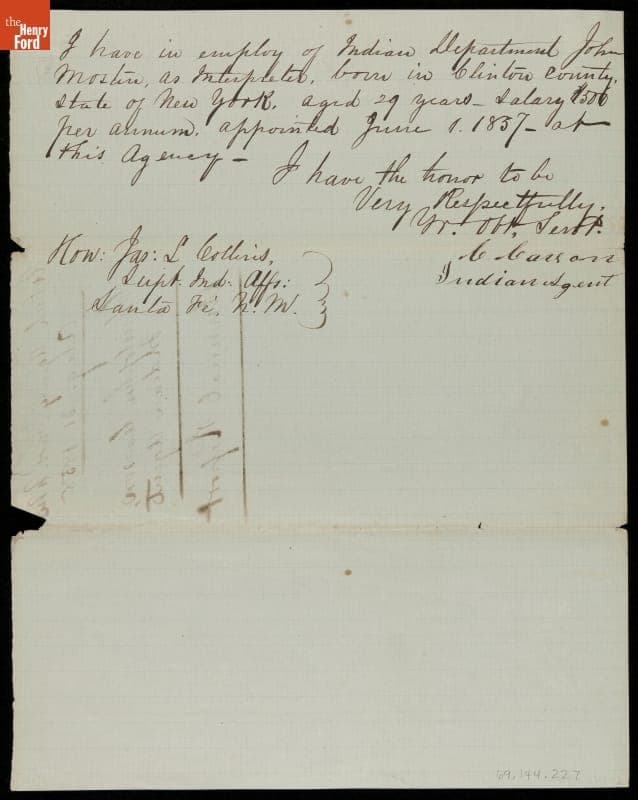 the
Henry
Ford
I have in employ of Indian Department John
Mostin, as Interpreter, born in Clinton county,
State of New York, aged 29 years – Salary $500
per annum, appointed June 1. 1857 – at
this Agency –
I have the honor to be
Very Respectfully,
Yr. Obt. Servt.
C Carson
Indian Agent
Hon: Jas: L Collins,
Supt. Ind. Affs:
Santa Fé, N. M.
69.144.227